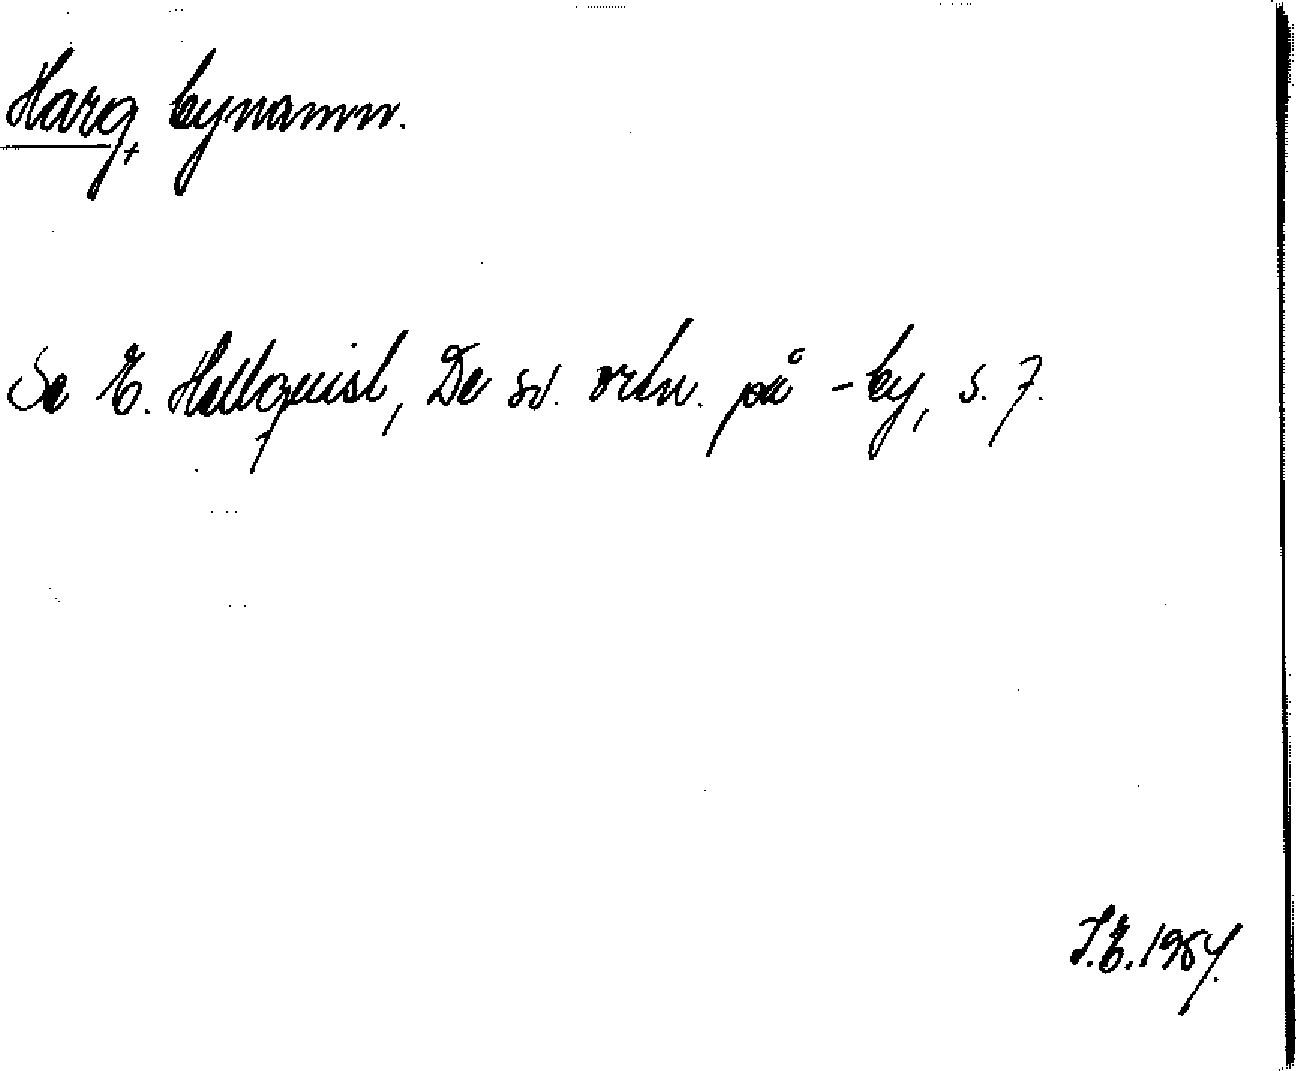 Harg, bynamn.
Se E. Hellquist, De sv. ortn. på -by, s. 7.
I.E. 1954.